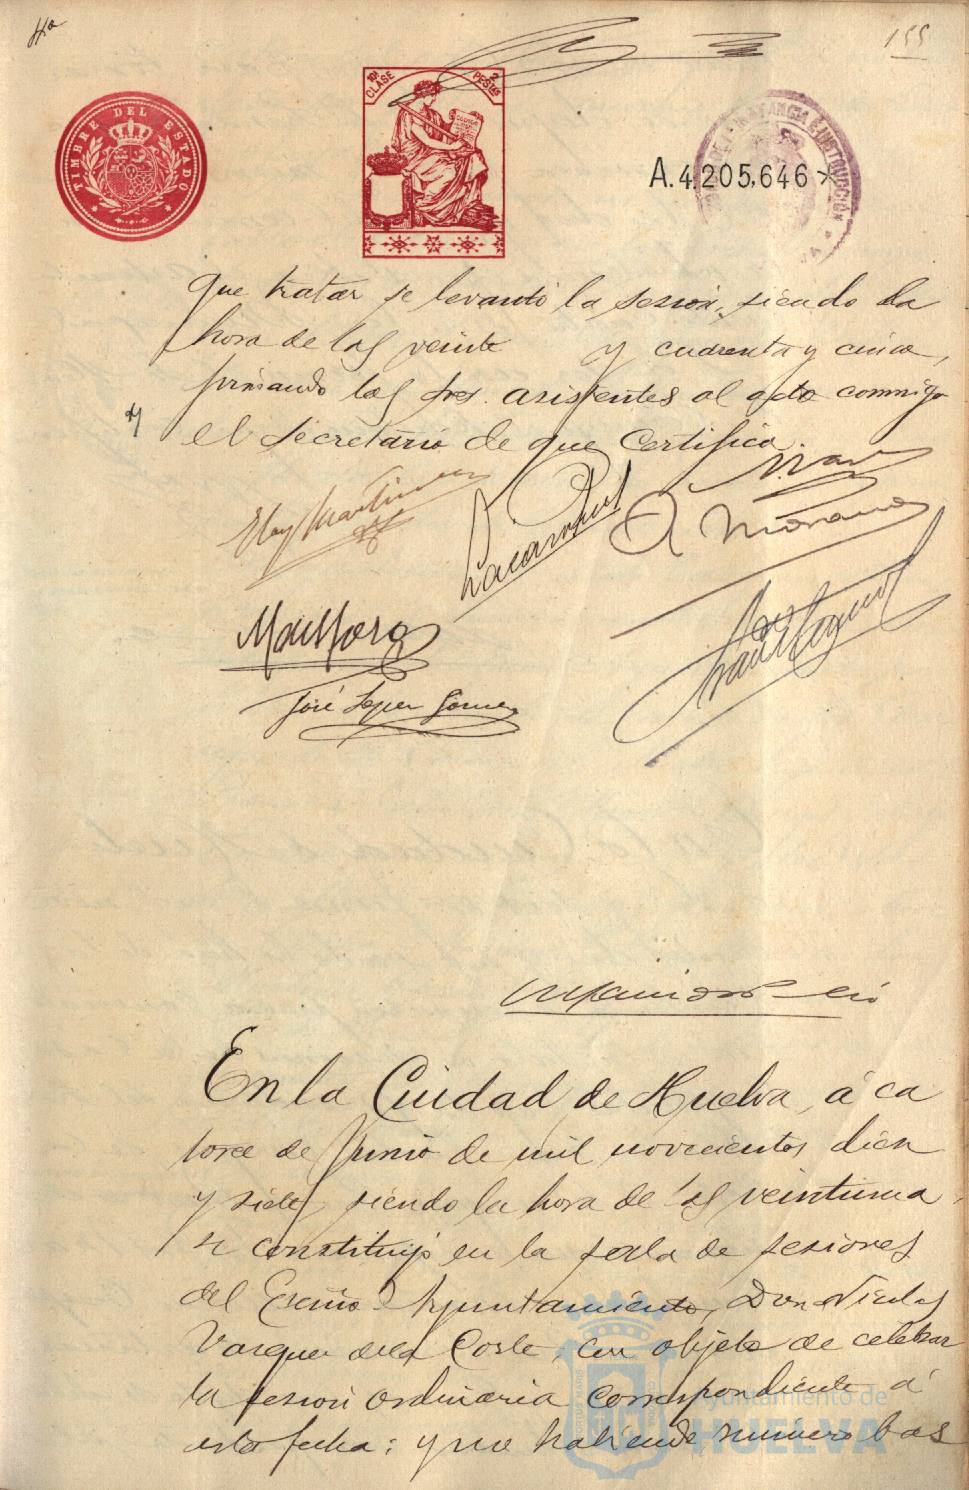 155
TIMBRE DEL ESTADO
10ª CLASE
2 PESETAS
A.4.205,646
INSTANCIA É INSTRUCCIÓN
que tratar se levantó la sesion, siendo la
hora de las veinte y cuarenta y cinco,
firmando los Sres. asistentes al acto conmigo
el Secretario de que Certifico.
Eloy Martinez
A Morano
José Lopez Gomez
En la Ciudad de Huelva, á ca
torce de Junio de mil novecientos diez
y siete, siendo la hora de las veintiuna,
se constituyó en la sala de sesiones
del Excmo. Ayuntamiento, Don Nicolas
Vazquez de la Corte, con objeto de celebrar
la sesion ordinaria correspondiente á
esta fecha; y no habiendo número bas
Ayuntamiento de
HUELVA